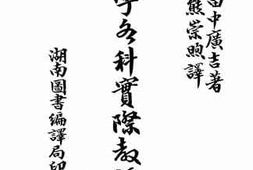 田中廣吉著
熊崇煦譯
各科實際教
湖南圖書編譯局印